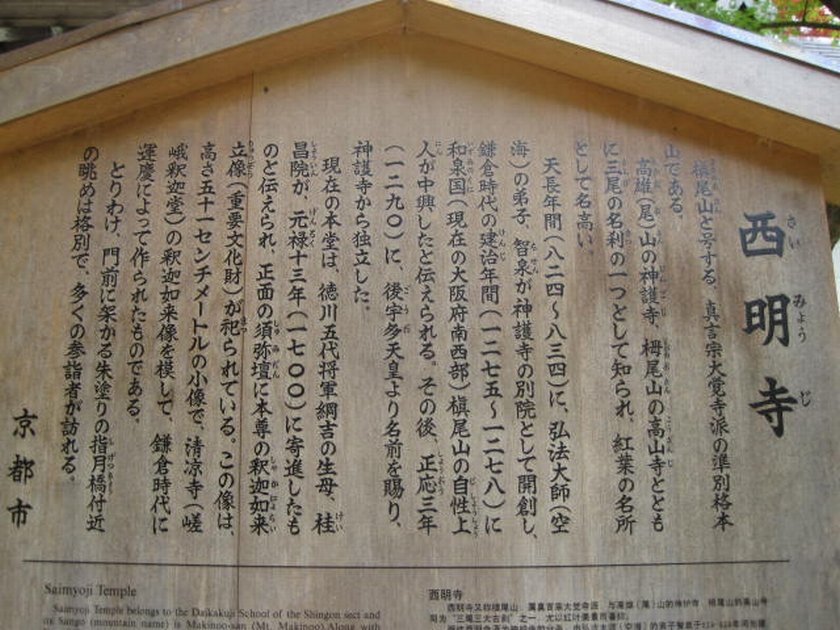 西明寺
槇尾山と号する、真言宗大覚寺派の準別格本
山である。
高雄(尾)山の神護寺、栂尾山の高山寺ととも
に三尾の名刹の一つとして知られ、紅葉の名所
として名高い。
天長年間(八二四～八三四)に、弘法大師(空
海)の弟子、智泉が神護寺の別院として開創し、
鎌倉時代の建治年間(一二七五～一二七八)に
和泉国(現在の大阪府南西部)槇尾山の自性上
人が中興したと伝えられる。その後、正応三年
(一二九〇)に、後宇多天皇より名前を賜り、
神護寺から独立した。
現在の本堂は、徳川五代将軍綱吉の生母、桂
昌院が、元禄十三年(一七〇〇)に寄進したも
のと伝えられ、正面の須弥壇に本尊の釈迦如来
立像(重要文化財)が祀られている。この像は、
高さ五十一センチメートルの小像で、清凉寺(嵯
峨釈迦堂)の釈迦如来像を模して、鎌倉時代に
運慶によって作られたものである。
とりわけ、門前に架かる朱塗りの指月橋付近
の眺めは格別で、多くの参詣者が訪れる。
京都市
Saimyoji Temple
Saimyoji Temple belongs to the Daikakuji School of the Shingon sect and
its Sango (mountain name) is Makinoo-san (Mt. Makinoo). Along with
西明寺
西明寺又称槙尾山,属真言宗大觉寺派,与高雄(尾)山的神护寺、栂尾山的高山寺
同为"三尾三大古刹"之一,尤以红叶美景而著称。